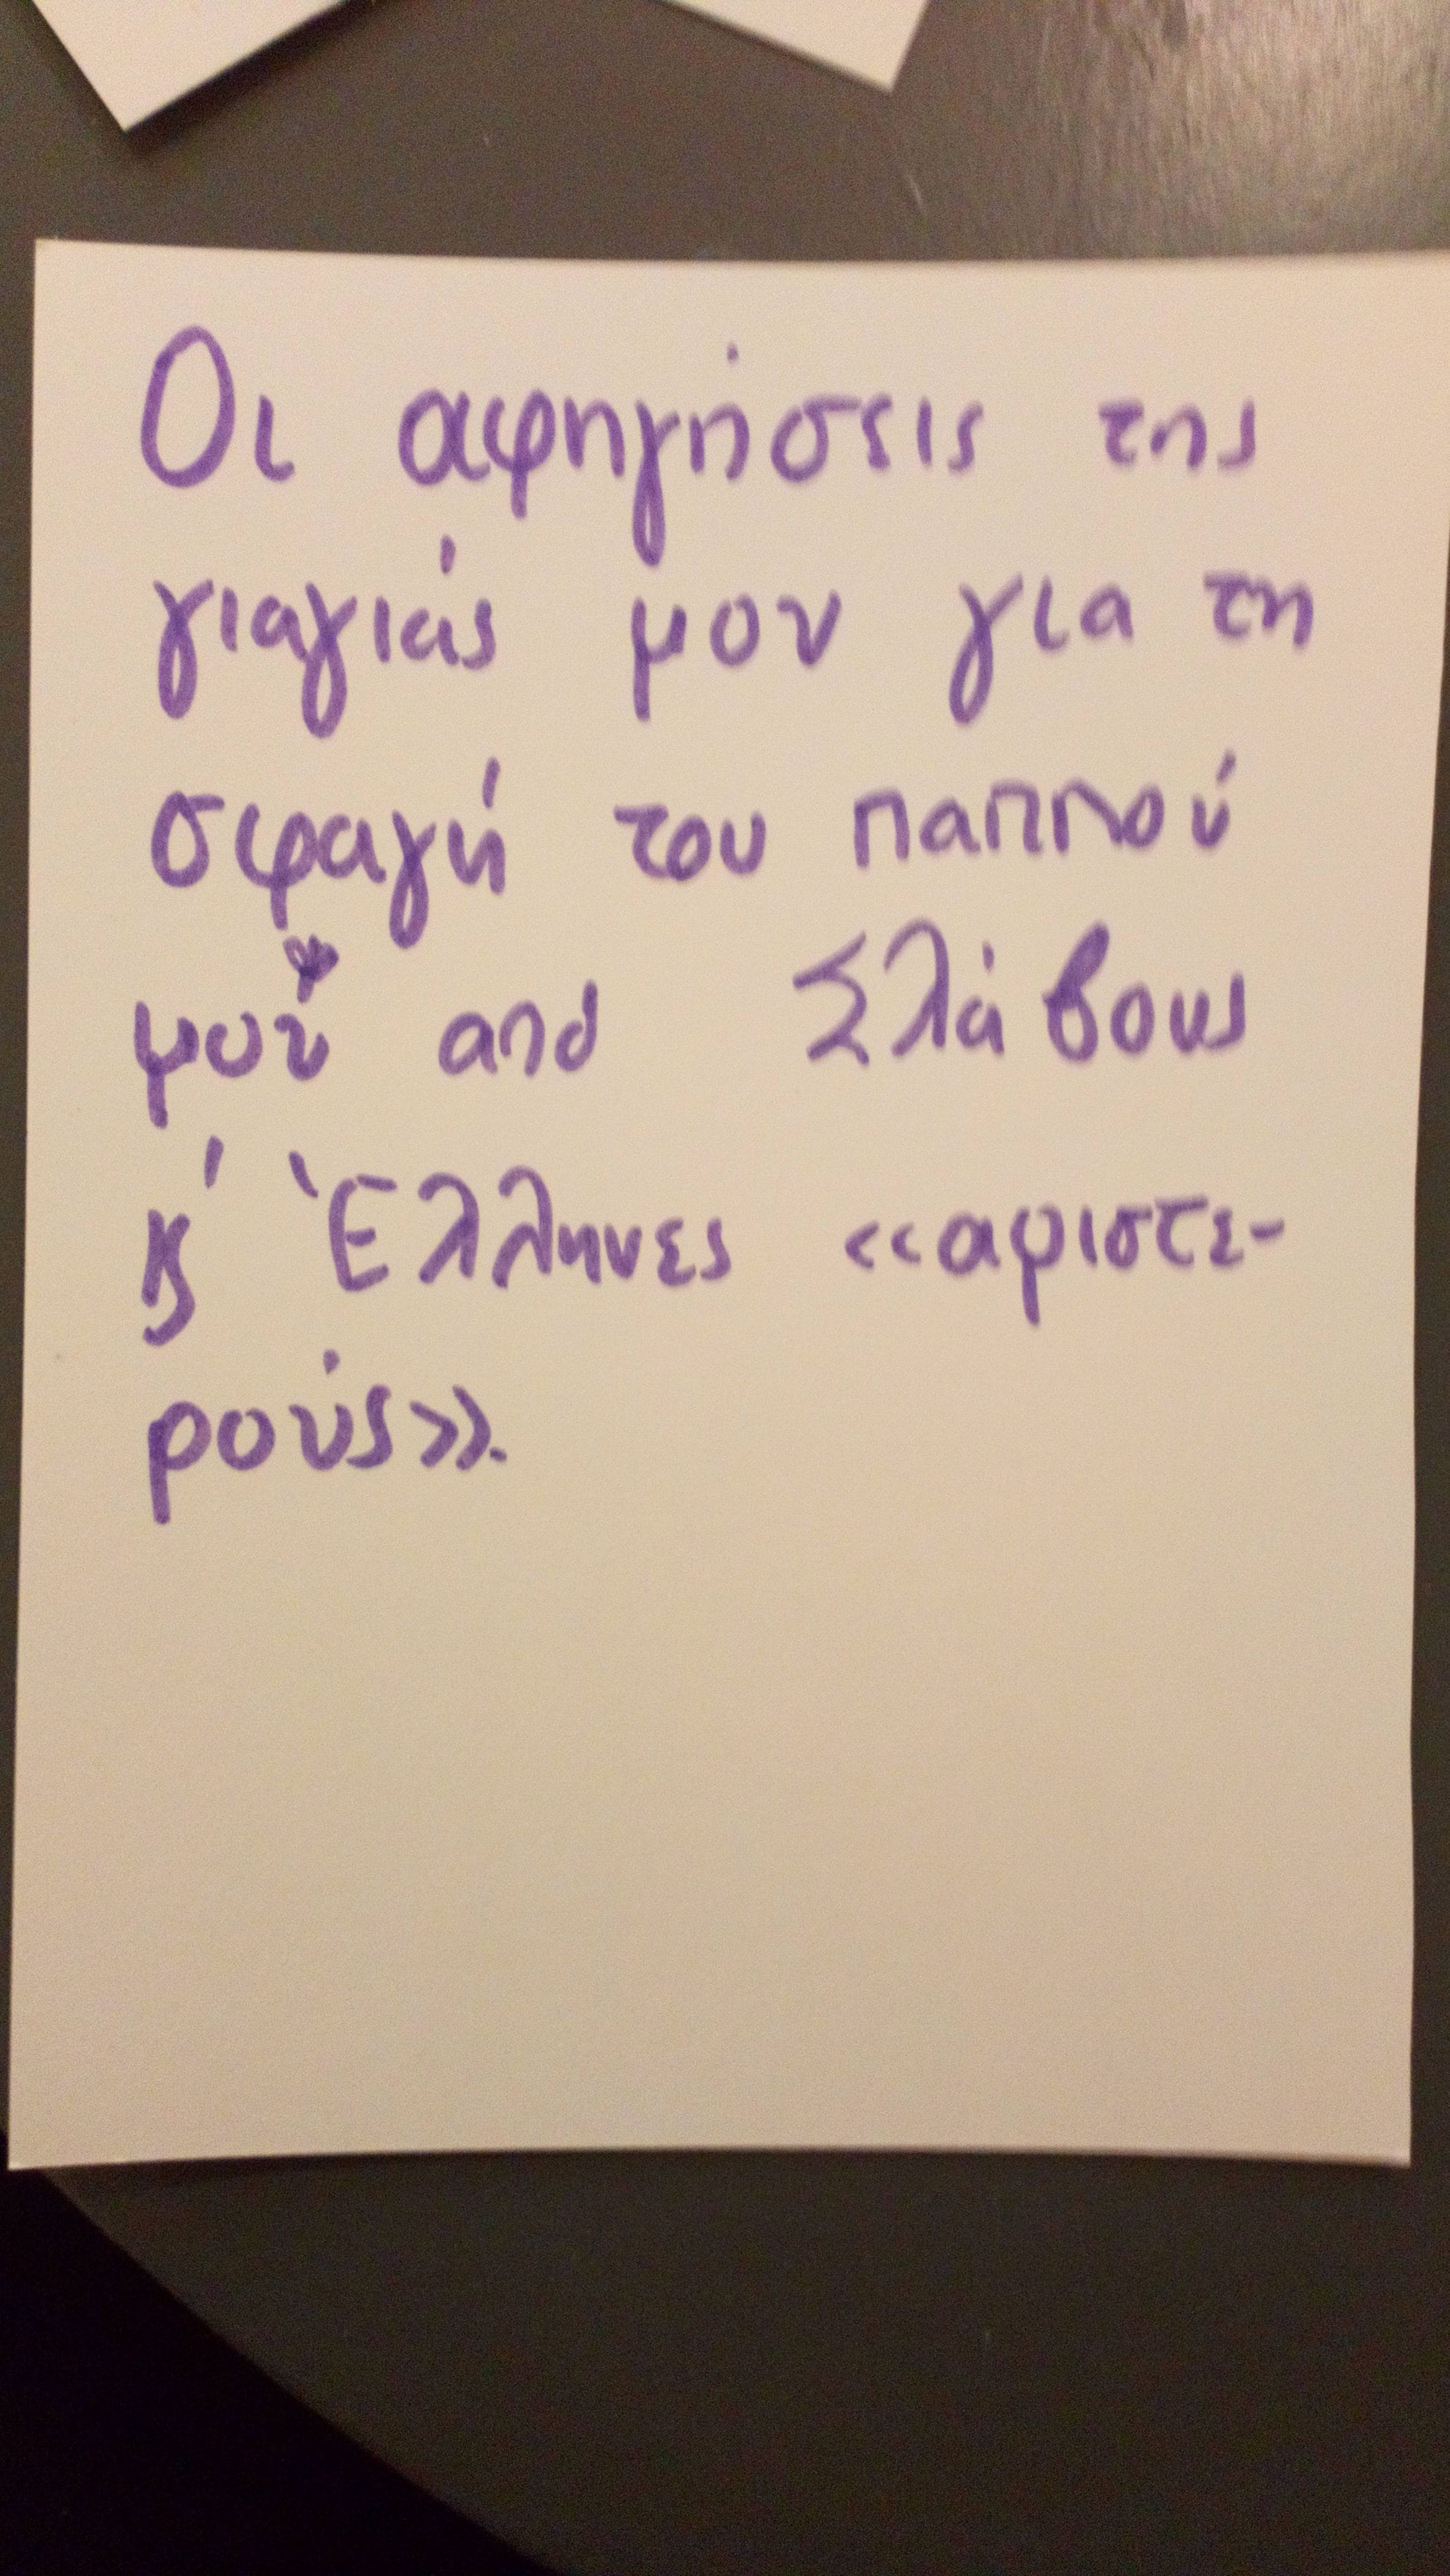 Οι αφηγήσεις της
γιαγιάς μου για τη
σφαγή του παππού
μου από Σλάβους
κ' Έλληνες «αριστε-
ρούς».